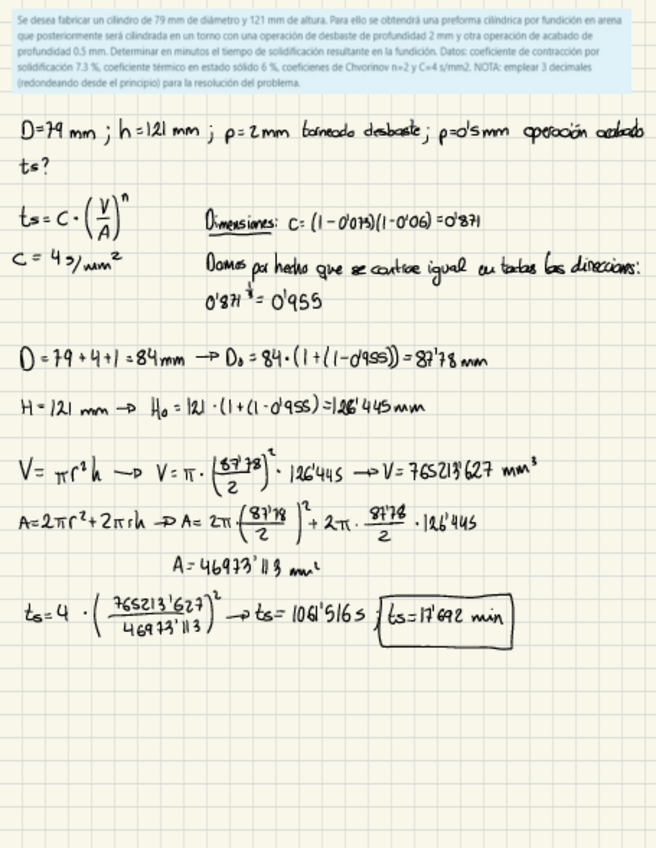 Se desea fabricar un cilindro de 79 mm de diámetro y 121 mm de altura. Para ello se obtendrá una preforma cilíndrica por fundición en arena
que posteriormente será cilindrada en un torno con una operación de desbaste de profundidad 2 mm y otra operación de acabado de
profundidad 0.5 mm. Determinar en minutos el tiempo de solidificación resultante en la fundición. Datos: coeficiente de contracción por
solidificación 7.3 %, coeficiente térmico en estado sólido 6 %, coeficienes de Chvorinov n=2 y C=4 s/mm2. NOTA: emplear 3 decimales
(redondeando desde el principio) para la resolución del problema.
D=79 mm ; h=121 mm ; p=2mm torneado desbaste ; p=0'5mm operación acabado
ts?
ts = C · (V/A)^n
C = 4 s/mm²
Dimensiones: C= (1-0'073)(1-0'06) = 0'871
Damos por hecho que se contrae igual en todas las direccions:
0'871^(1/3) = 0'955
D = 79+4+1 = 84mm → D₀ = 84·(1+(1-0'955)) = 87'78 mm
H = 121 mm → H₀ = 121·(1+(1-0'955)=126'445mm
V= πr²h → V= π·(87'78/2)²· 126'445 → V= 765213'627 mm³
A=2πr²+2πrh → A= 2π·(87'78/2)² + 2π· 87'78/2 · 126'445
A= 46973'113 mm²
ts=4 · (765213'627/46973'113)² → ts= 1061'516 s ; ts=17'692 min